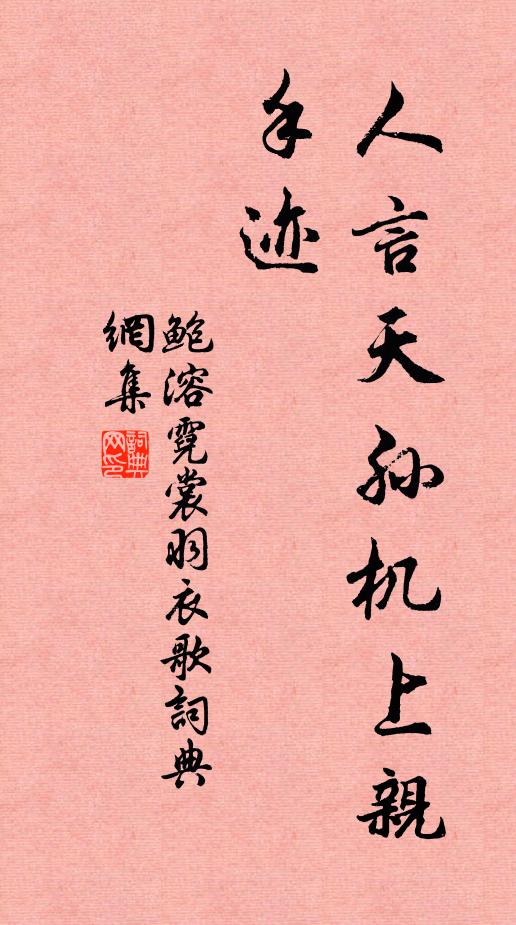 人言天孙机上親
手迹
鲍溶霓裳羽衣歌詞典
網集
詞典網印